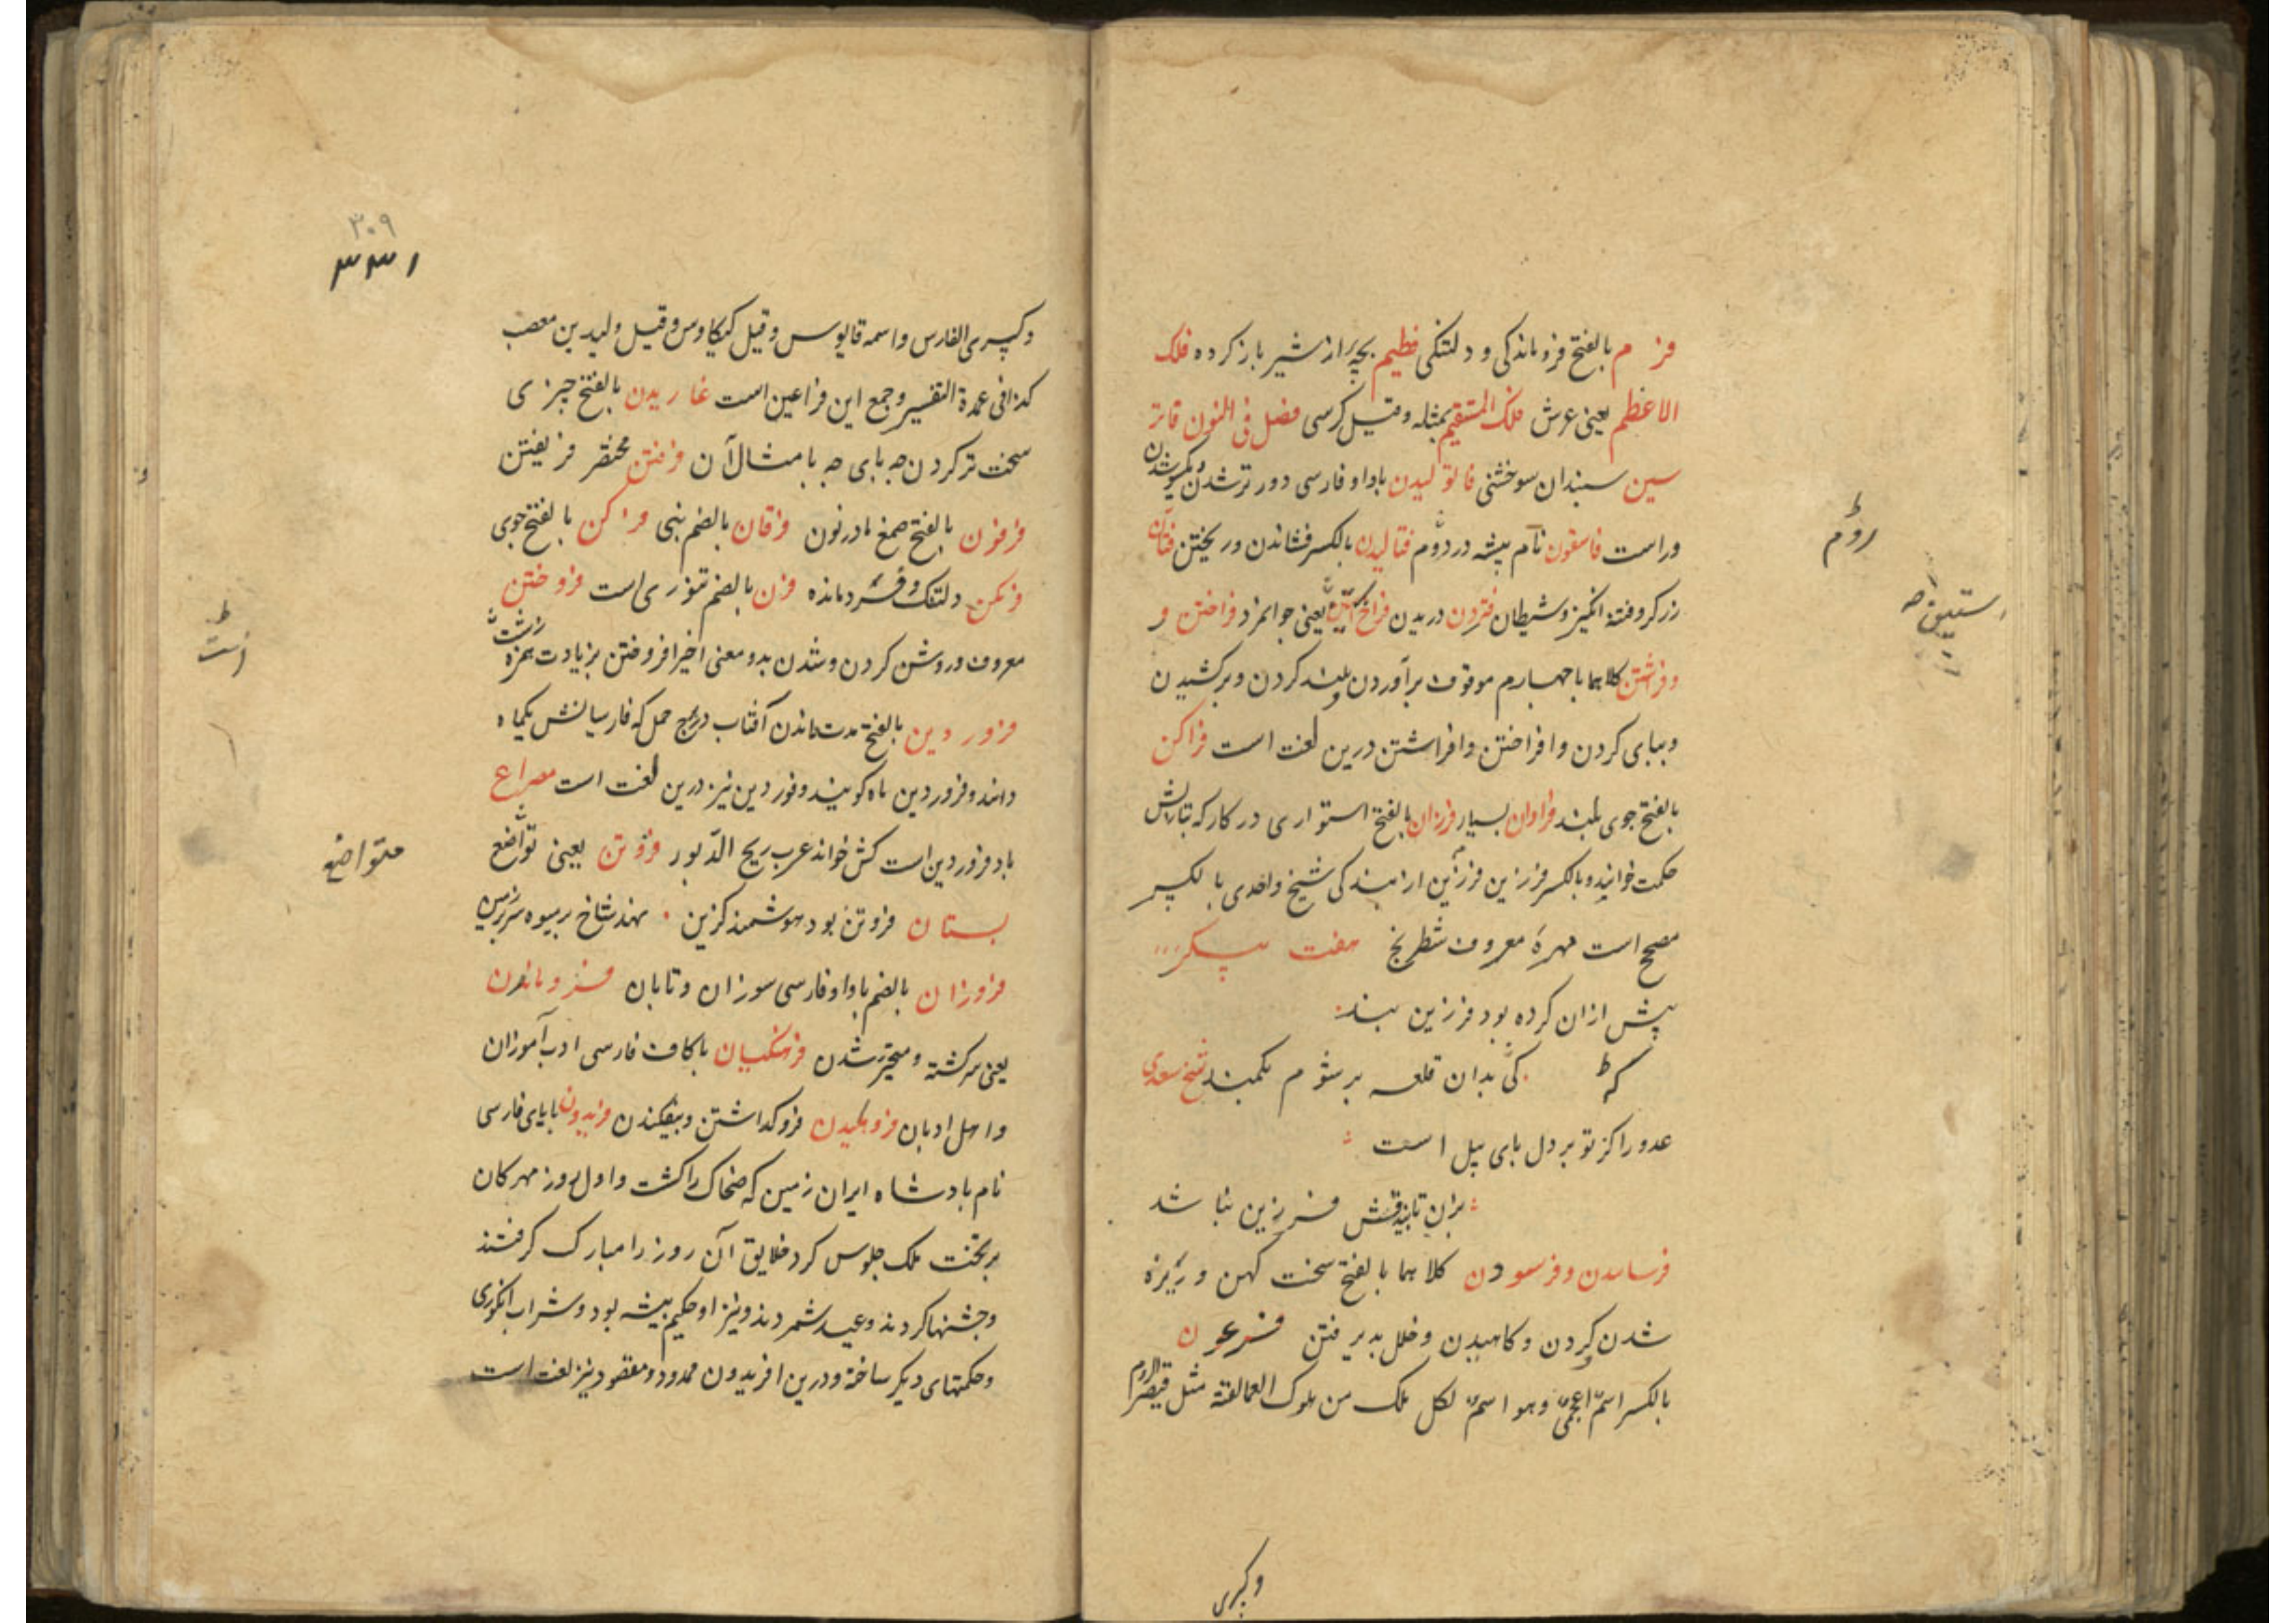 فرم بالفتح فروماندکی و دلتنکی فطیم بچه از شیر باز کرده فلک
الاعظم یعنی عرش فلک المستقیم بمثله وقیل کرسی فصل فی النون
سین سبندان سوختنی فالولیدن باواو فارسی دور تر شدن
وراست فاسقون نام بیشه در دوم فتالیدن بالکسر فشاندن و ریختن فتان
زرکر و فتنه انکیز و شیطان فتردن دریدن فراخ یعنی جوانمرد فراختن و
وفراشتن کلاهما باچهارم موقوف برآوردن و بلند کردن و برکشیدن
وبپای کردن وافراختن وافراشتن درین لغت است فراکن
بالفتح جوی بلند فراوان بسیار فرزان بالفتح استواری در کار که بتازیش
حکمت خوانند وبالکسر فرزین فرزین از بندکی شیخ واحدی بالکسر
مصحح است مهرهٔ معروف شطرنج هفت پیکر
پیش ازان کرده بود فرزین بند
که کی بدان قلعه بر شوم بکمند شیخ سعدی
عدو را کز تو بر دل پای پیل است
بزن تا بیدقش فرزین نباشد
فرسایدن وفرسودن کلاهما بالفتح سخت کهن و ریزه
شدن و کردن و کاهیدن و خلل پذیرفتن فرعون
بالکسر اسم اعجمی وهو اسم لکل ملک من ملوک العمالقة مثل قیصر الروم
وکسری
روم
۳۰۹
۳۳۱
وکسری الفارس واسمه قابوس وقیل کیکاوس وقیل ولید بن مصعب
کذا فی عمدة التفسیر وجمع این فراعین است غاریدن بالفتح چیزی
سخت تر کردن چه بای چه بامثال آن فرفتن مختصر فریفتن
فرفون بالفتح صمغ مادرنون فرقان بالضم نبی فراکن بالفتح جوی
فرکن دلتنک وفسرده مانده فرن بالضم تنوری است فروختن
معروف و روشن کردن وشدن بدو معنی اخیر افروختن بزیادت همزه
فروردین بالفتح مدت ماندن آفتاب در برج حمل که فارسیانش یکماه
دانند وفروردین ماه کویند وفوردین نیز درین لغت است مصراع
باد فروردین است کش خواند عرب ریح الدبور فروتن یعنی تواضع
بستان فروتن بود هوشمند کزین نهد شاخ پر میوه سر بر زمین
فروزان بالضم باواو فارسی سوزان وتابان فروماندن
یعنی سرکشته ومتحیر شدن فرهنکیان باکاف فارسی ادب آموزان
واهل ادبان فروهلیدن فروکداشتن وبیفکندن فریدون بایای فارسی
نام پادشاه ایران زمین که ضحاک را کشت واول روز مهرکان
بر تخت ملک جلوس کرد خلایق آن روز را مبارک کرفتند
وجشنها کردند وعید شمردند ونیز او حکیم پیشه بود وشراب انکوری
وحکمتهای دیکر ساخته ودرین افریدون ممدود ومقصود نیز لغت است
است
متواضع